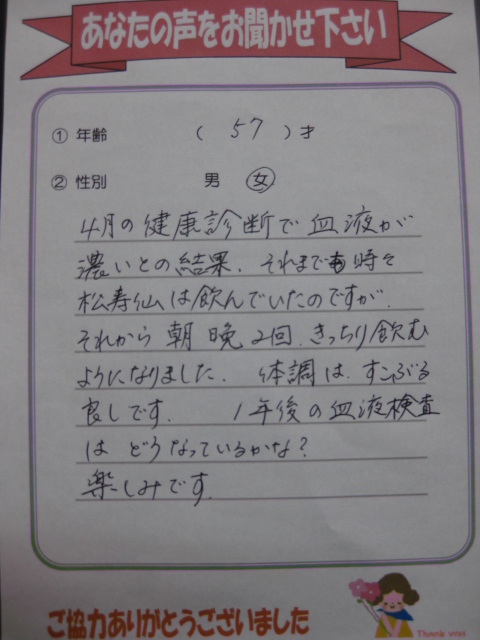 あなたの声をお聞かせ下さい
① 年齢 ( 57 )才
② 性別 男 女
4月の健康診断で血液が
濃いとの結果、それまでも時々
松寿仙は飲んでいたのですが、
それから朝晩2回、きっちり飲む
ようになりました。体調は、すこぶる
良しです。 1年後の血液検査
は どうなっているかな?
楽しみです。
ご協力ありがとうございました
Thank you